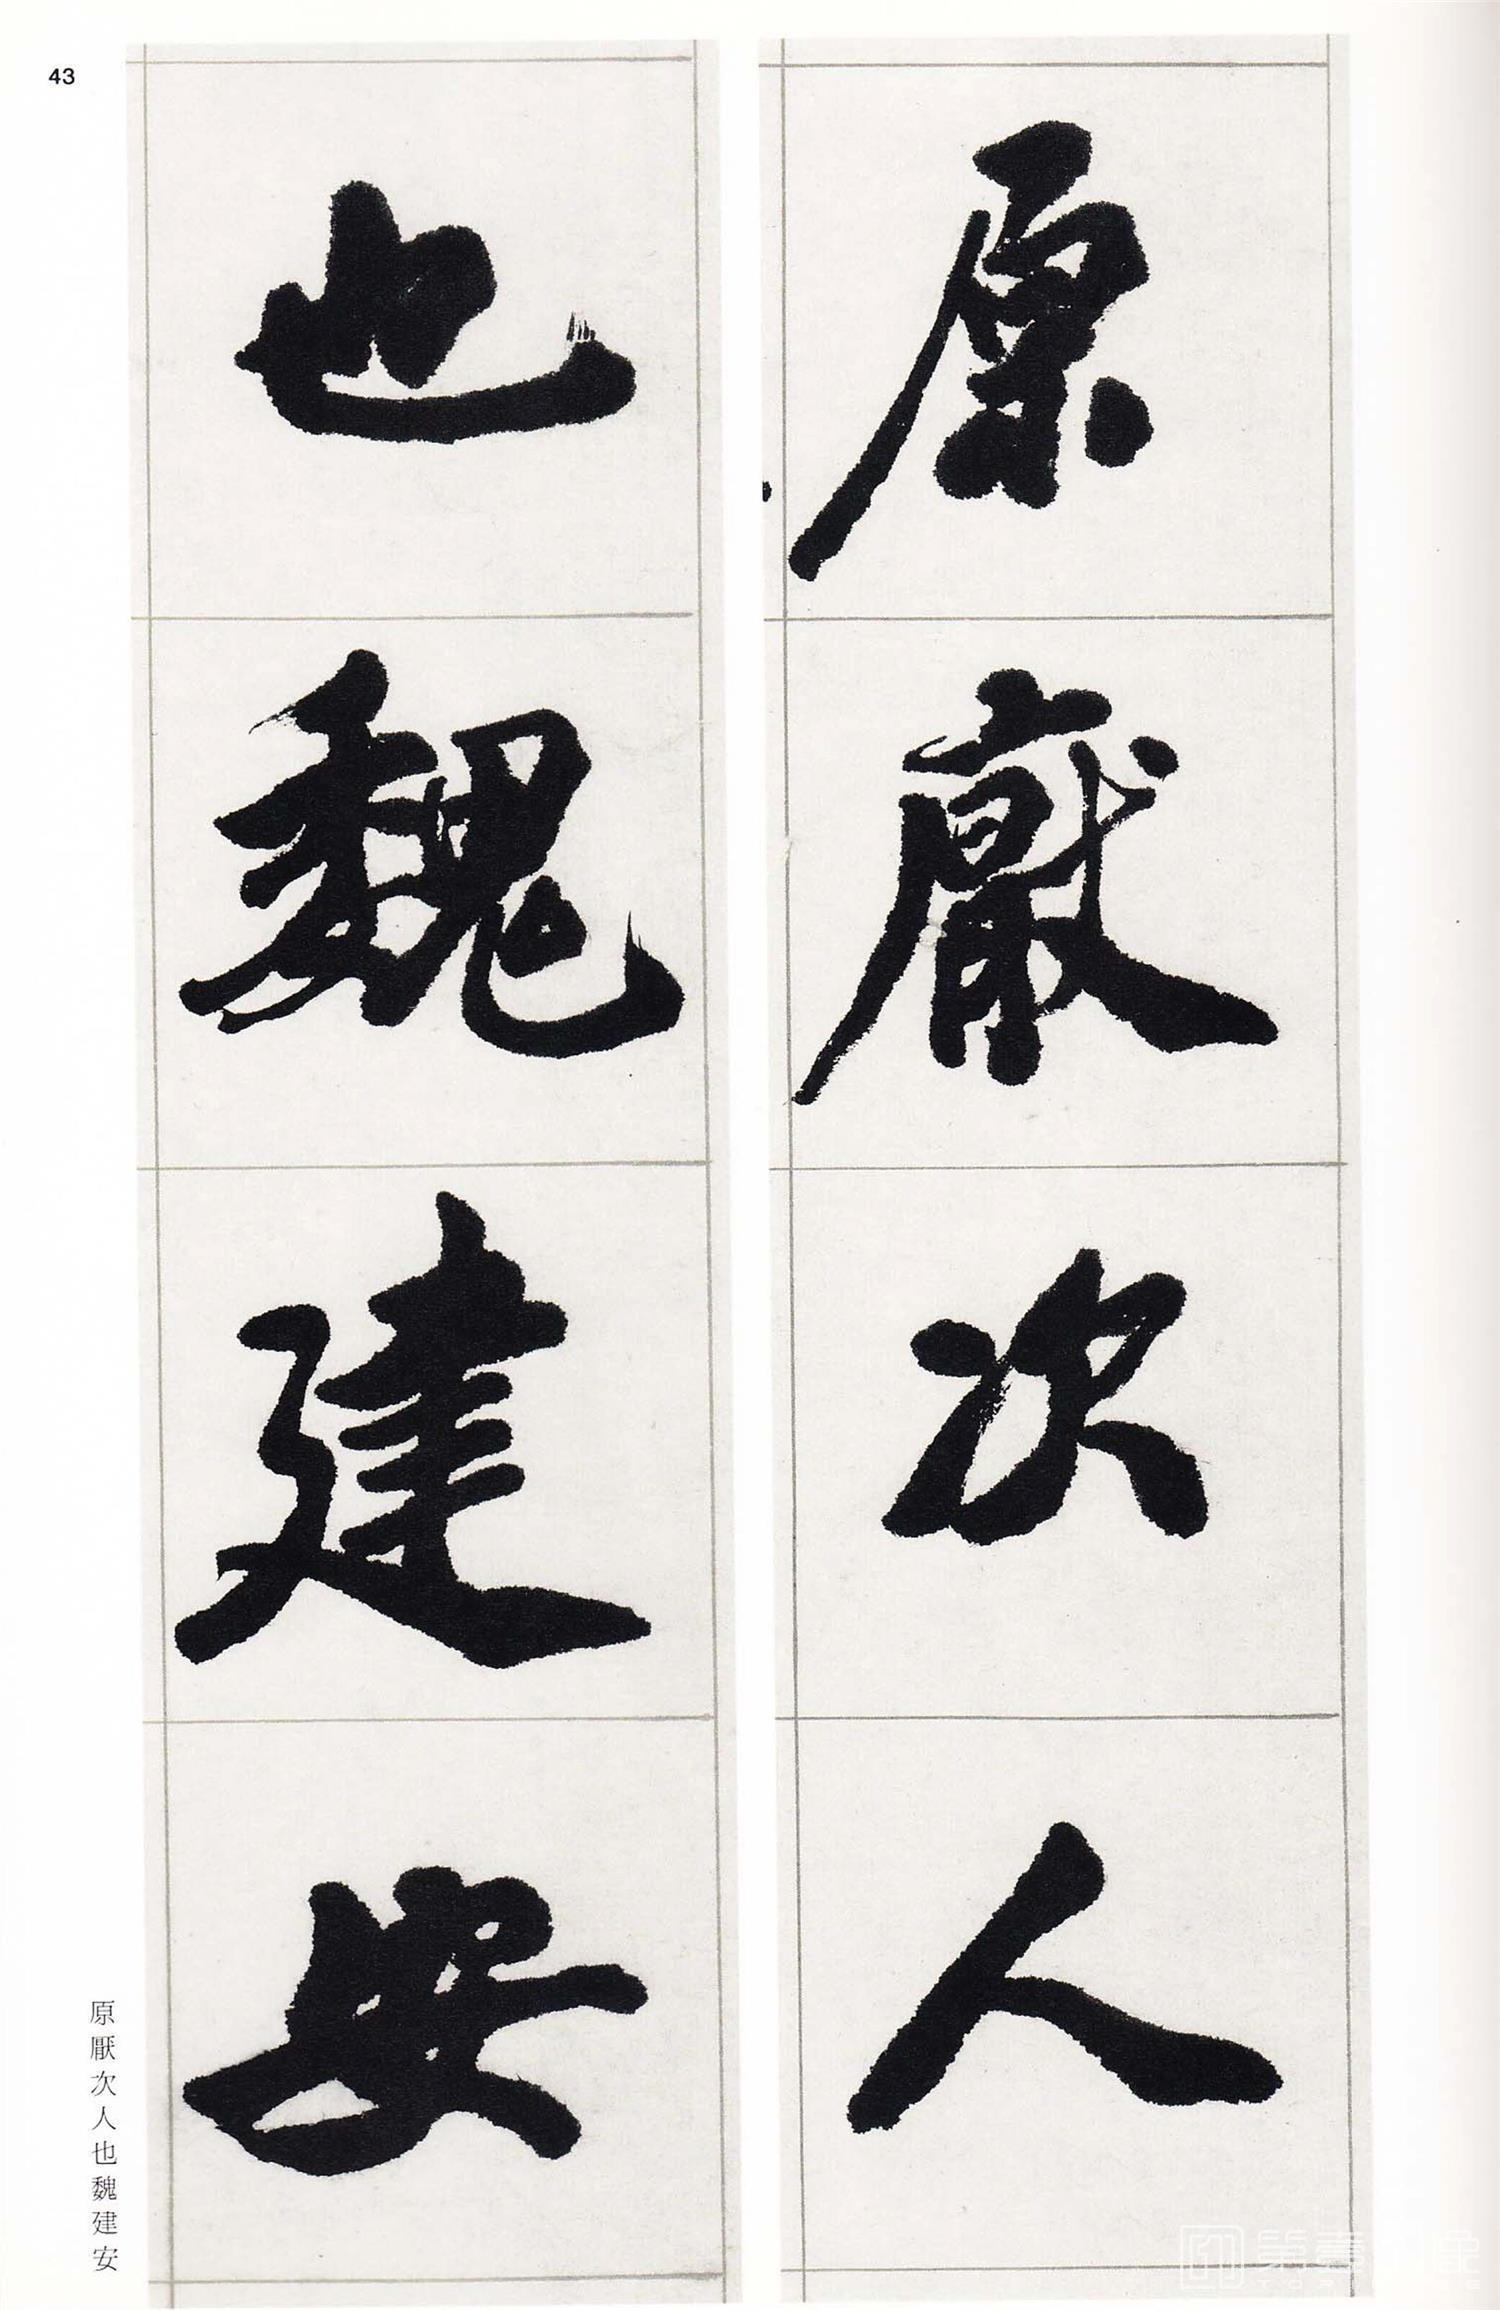 43
原厭次人
也魏建安
原厭次人也魏建安